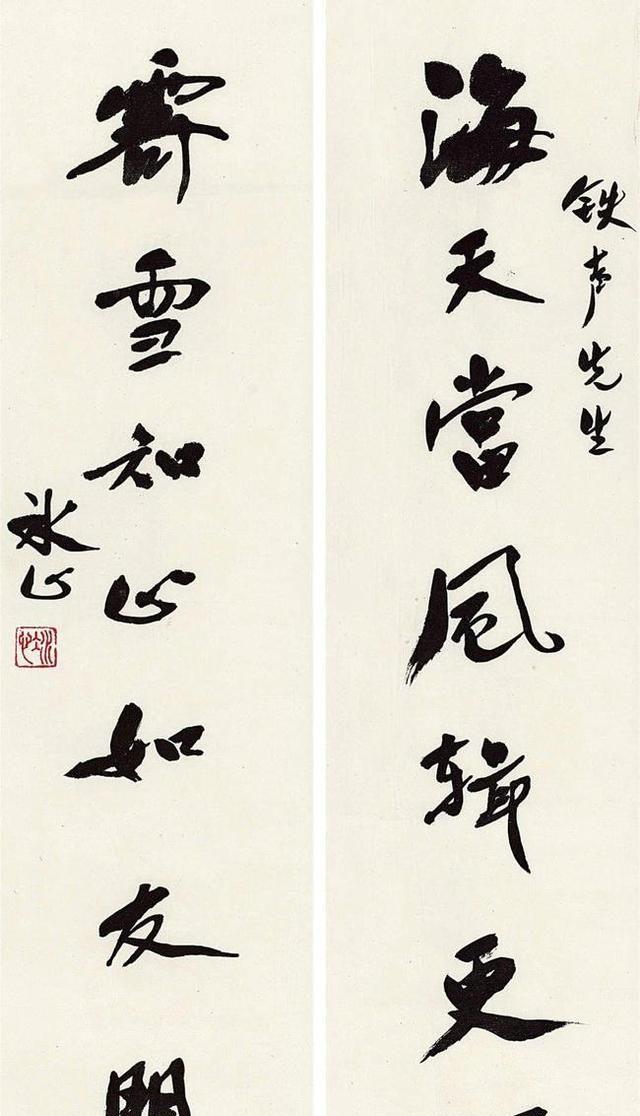 铁声先生
海天當風輯更
霽雪知心如友
冰心